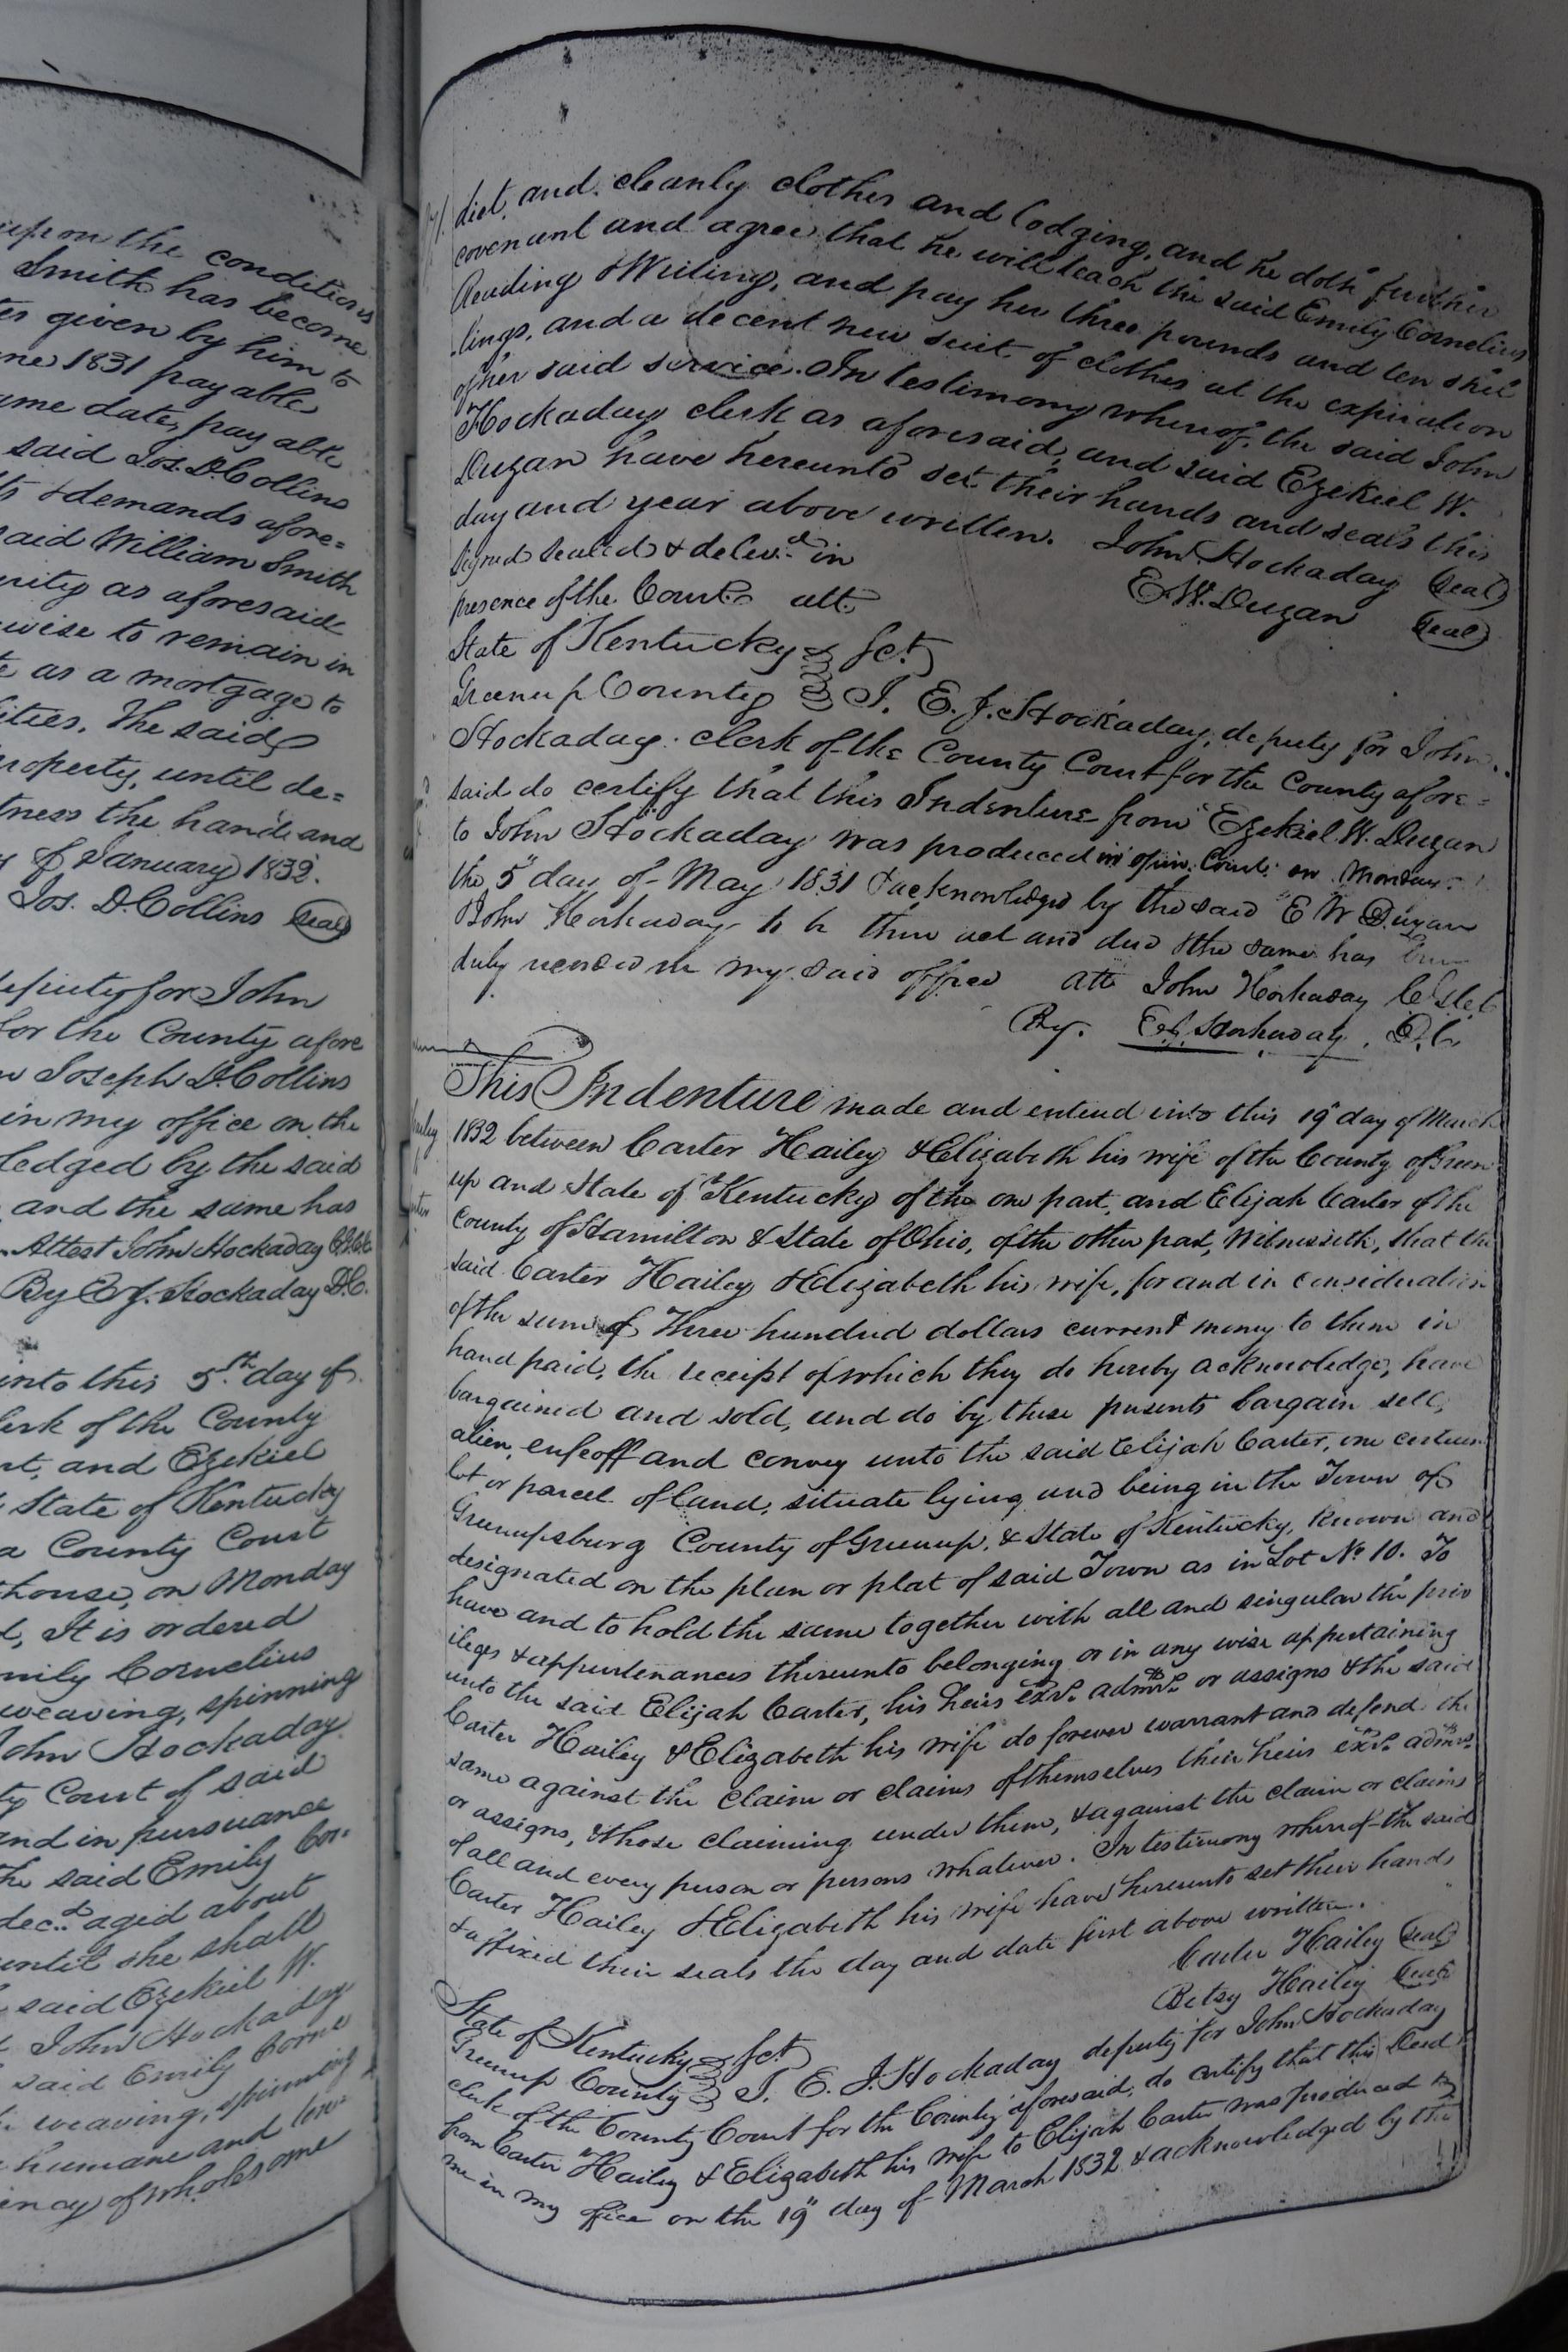 upon the conditions
Smith has become
given by him to
1831 payable
same date, pay able
said Jos. D. Collins
& demands afore=
said William Smith
as aforesaid
wise to remain in
as a mortgage to
The said
property, until de=
the hand and
of January 1832.
Jos. D. Collins (Seal)
deputy for John
for the County afore
Joseph D. Collins
in my office on the
ledged by the said
and the same has
Attest John Hockaday
By E. J. Hockaday D.C.
into this 5th day of
of the County
and Ezekiel
State of Kentucky
a County Court
house, on Monday
It is ordered
Emily Cornelius
weaving, spinning
John Hockaday
Court of said
and in pursuance
the said Emily Cor-
dec.d aged about
until she shall
said Ezekiel W.
John Hockaday
said Emily
weaving, spinning
humane and
of wholesome
diet, and cleanly clothes and lodging, and he doth further
covenant and agree that he will teach the said Emily Cornelius
Reading & Writing, and pay her three pounds and ten shil
lings, and a decent new suit of clothes at the expiration
of her said service. In testimony whereof, the said John
Hockaday clerk as aforesaid, and said Ezekiel W.
Duzan have hereunto set their hands and seals this
day and year above written. John Hockaday (Seal)
signed sealed & deliv.d in E. W. Duzan (Seal)
presence of the Court att.
State of Kentucky Sct.
Greenup County I. E. J. Hockaday, deputy for John
Hockaday clerk of the County Court for the County afore=
said do certify that this Indenture from Ezekiel W. Duzan
to John Hockaday was produced in open Court on Monday
the 5" day of May 1831 & acknowledged by the said E W Duzan
& John Hockaday to be their act and deed & the same has been
duly recorded in my said office Att John Hockaday
By. E. J. Hockaday. D.C.
This Indenture made and entered into this 19" day of March
1832 between Carter Hailey & Elizabeth his wife of the County of Green
up and State of Kentucky of the one part, and Elijah Carter of the
County of Hamilton & State of Ohio, of the other part, Witnesseth, that the
said Carter Hailey & Elizabeth his wife, for and in consideration
of the sum of Three hundred dollars current money to them in
hand paid, the receipt of which they do hereby acknowledge, have
bargained and sold, and do by these presents bargain sell,
alien, enfeoff and convey unto the said Elijah Carter, one certain
lot or parcel of land, situate lying and being in the Town of
Greenupsburg County of Greenup, & State of Kentucky, known and
designated on the plan or plat of said Town as in Lot No. 10. To
have and to hold the same together with all and singular the priv
ileges & appurtenances thereunto belonging or in any wise appertaining
unto the said Elijah Carter, his heirs exrs. admrs. or assigns & the said
Carter Hailey & Elizabeth his wife do forever warrant and defend the
same against the claim or claims of themselves their heirs exrs. admrs.
or assigns, & those claiming under them, & against the claim or claims
of all and every person or persons whatever. In testimony whereof the said
Carter Hailey & Elizabeth his wife have hereunto set their hands
& affixed their seals the day and date first above written.
Carter Hailey (Seal)
Betsy Hailey (Seal)
State of Kentucky Sct
Greenup County I. E. J. Hockaday deputy for John Hockaday
clerk of the County Court for the County aforesaid, do certify that this Deed
from Carter Hailey & Elizabeth his wife to Elijah Carter was produced to
me in my office on the 19" day of March 1832 & acknowledged by the